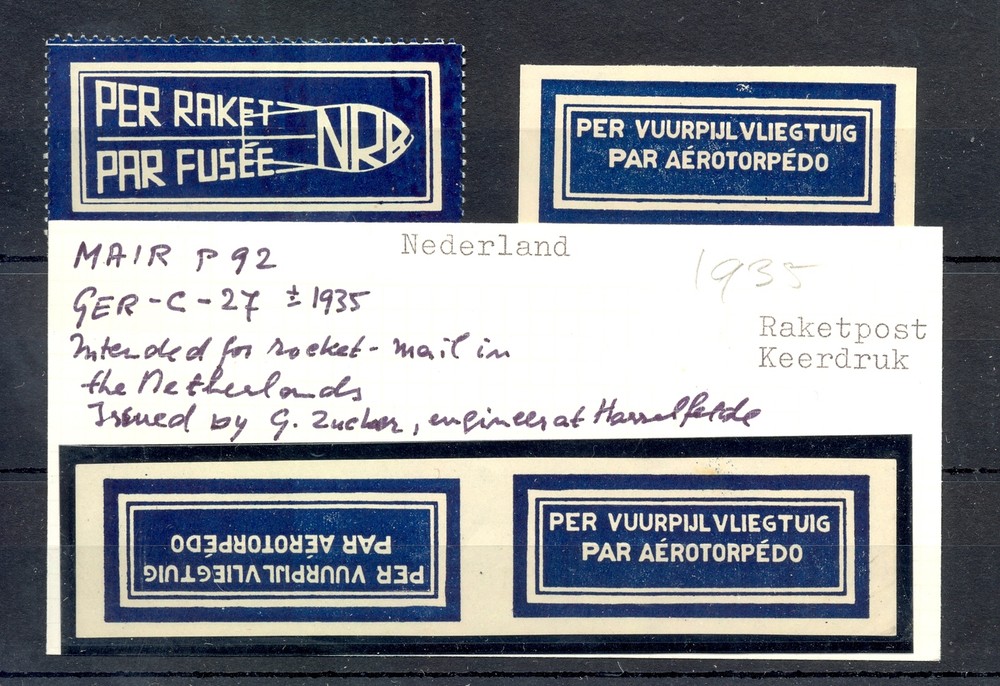 PER RAKET
PAR FUSÉE
NRB
PER VUURPIJLVLIEGTUIG
PAR AÉROTORPÉDO
Nederland
1935
MAIR P 92
GER-C-27 ± 1935
Intended for rocket-mail in
the Netherlands
Issued by G. Zucker, engineer at Hasselfelde
Raketpost
Keerdruk
PER VUURPIJLVLIEGTUIG
PAR AÉROTORPÉDO
PER VUURPIJLVLIEGTUIG
PAR AÉROTORPÉDO